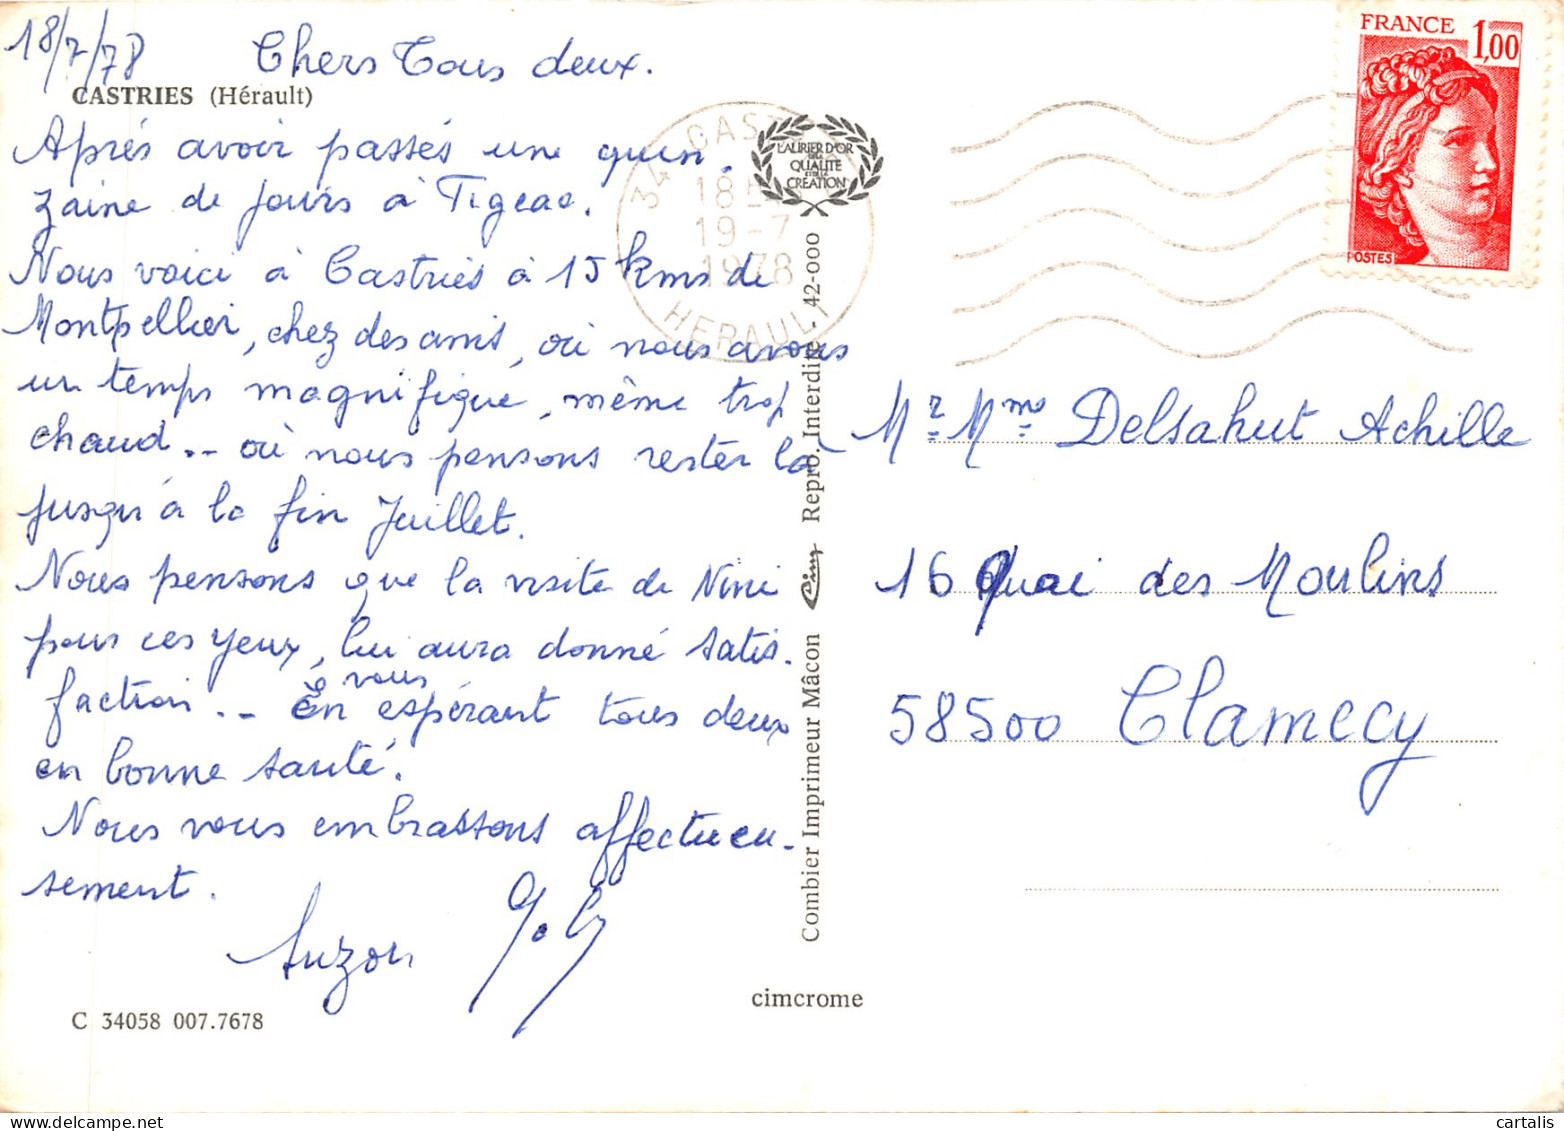 18/7/78 Chers Tous deux.
CASTRIES (Hérault)
Après avoir passés une quin.
zaine de jours à Figeac.
Nous voici à Castries à 15 kms de
Montpellier, chez des amis, où nous avons
un temps magnifique, même trop
chaud.. où nous pensons rester là
jusqu'à la fin Juillet.
Nous pensons que la visite de Nini
pour ces yeux, lui aura donné satis.
faction.. En vous espérant tous deux
en bonne santé.
Nous vous embrassons affectueu-
sement.
Suzon
C 34058 007.7678
34 CAST
18
19-7
1978
HERAULT
LAURIER D'OR
DE LA
QUALITE
ET DE LA
CREATION
Combier Imprimeur Mâcon Cim Repro. Interdite. 42-000
cimcrome
FRANCE 1,00
POSTES
Mr Mme Delsahut Achille
16 Quai des Moulins
58500 Clamecy
cartalis